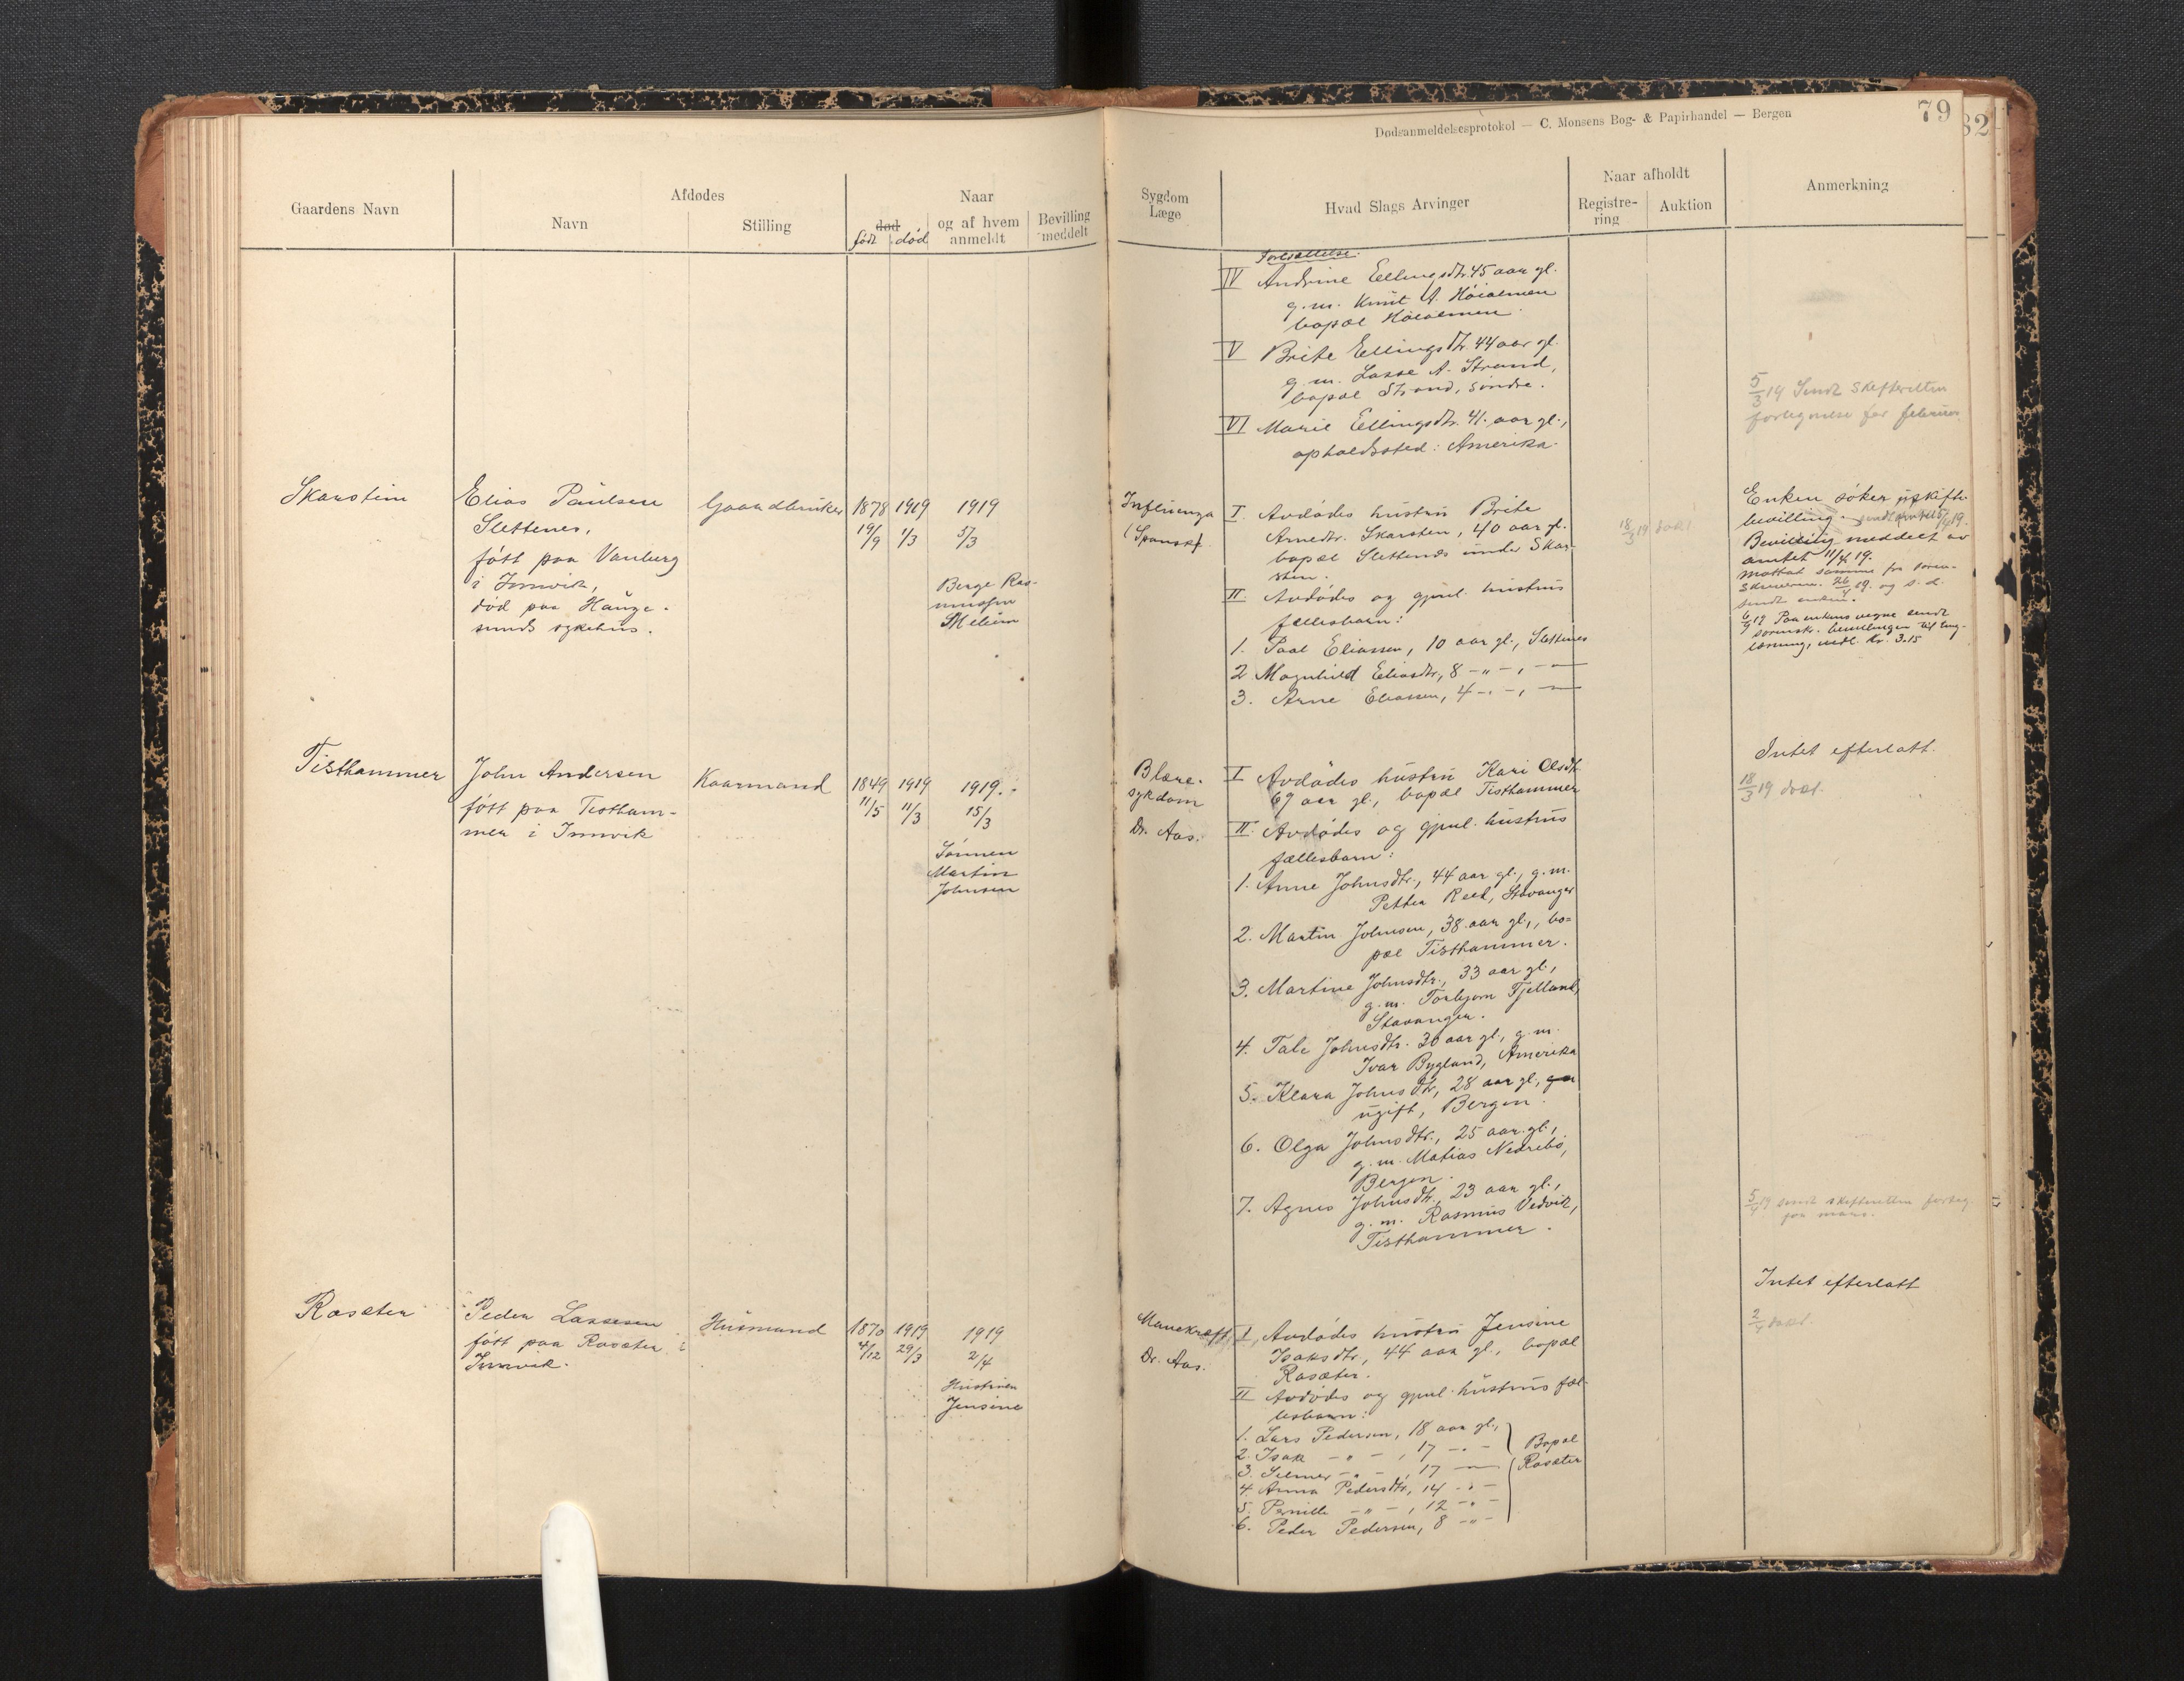 Dødsanmeldelsesprotokol — C. Monsens Bog- & Papirhandel — Bergen
79
82
Gaardens Navn
Afdødes
Navn
Stilling
død
født død
Naar
og af hvem
anmeldt
Bevilling
meddelt
Sygdom
Læge
Hvad Slags Arvinger
Naar afholdt
Registre-
ring
Auktion
Anmerkning
Fortsættelse.
IV Andrine Ellingsdtr. 45 aar gl.
g.m. Knut A. Høialmen
bopæl Høialmen.
V Brite Ellingsdtr. 44 aar gl.
g.m. Lasse A. Strand,
bopæl Strand, søndre.
VI Marie Ellingsdtr. 41. aar gl.,
opholdssted: Amerika.
5/3 19 Sendt Skifteretten
fortegnelse for februar
Skarstein
Elias Paulsen
Slettenes,
født paa Vanberg
i Innvik,
død paa Hauge-
sunds sykehus.
Gaardbruker
1878 1919 1919
19/9 1/3 5/3
Berge Ras-
mussen
Influenza
(Spansk)
I. Avdødes hustru Brite
Arnedtr. Skarsten, 40 aar gl.
bopæl Slettenes under Skar-
sten.
II. Avdødes og gjenl. hustrus
fællesbarn:
1. Paal Eliassen, 10 aar gl., Slettenes
2. Magnhild Eliasdtr., 8 -"- , -"-
3. Arne Eliassen, 4 -"- , -"-
18/3 19
Enken søker uskifte-
bevilling.
Bevilling meddelt av
amtet 11/4 19.
Mottat samme fra soren-
skriveren 26/4 19. og s.d.
sendt enken.
Paa enkens vegne sendt
sorenskr. bevillingen til ting-
læsning, vedl. Kr. 3.15
Tisthammer
John Andersen
født paa Tistham-
mer i Innvik
Kaarmand
1849 1919 1919.
11/5 11/3 15/3
Sønnen
Martin
Johnsen
Blære-
sykdom
Dr. Aas.
I Avdødes hustru Kari Olsdtr.
69 aar gl., bopæl Tisthammer
II. Avdødes og gjenl. hustrus
fællesbarn:
1. Anne Johnsdtr., 44 aar gl., g.m.
Petter Reed, Stavanger
2. Martin Johnsen, 38 aar gl., bo-
pæl Tisthammer.
3. Martine Johnsdtr., 33 aar gl.,
g.m. Torbjørn Fjelland,
Stavanger.
4. Tale Johnsdtr. 30 aar gl., g.m.
Ivar Bygland, Amerika
5. Klara Johnsdtr., 28 aar gl.,
ugift, Bergen.
6. Olga Johnsdtr., 25 aar gl.,
g.m. Matias Nedrebø,
Bergen.
7. Agnes Johnsdtr., 23 aar gl.,
g.m. Rasmus Vedvik,
Tisthammer.
Intet efterlatt.
18/3 19
5/4 19 sendt skifteretten forteg.
for mars.
Rosæter
Peder Lassesen
født paa Rosæter i
Innvik.
Husmand
1870 1919 1919
4/12 29/3 2/4
Hustruen
Jensine
Mavekræft
Dr. Aas.
I. Avdødes hustru Jensine
Isaksdtr., 44 aar gl., bopæl
Rosæter.
II Avdødes og gjenl. hustrus fæl-
lesbarn:
1. Lars Pedersen, 18 aar gl.,
2. Isak -"- , 17 -"-
3. Selmer -"- , 17 -"-
4. Anna Pedersdtr., 14 -"-
5. Pernille -"- , 12 -"-
6. Peder Pedersen, 8 -"-
Bopæl
Rosæter
Intet efterlatt
2/4